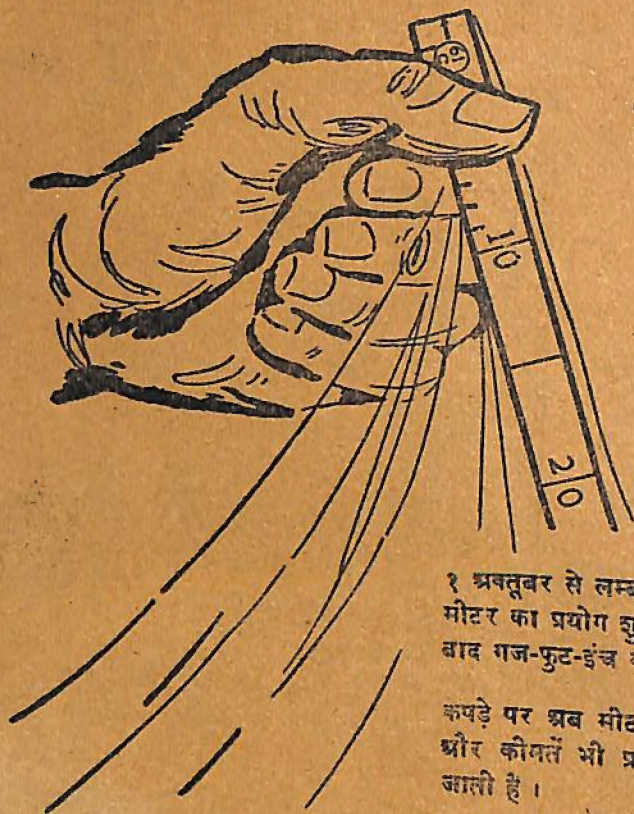 10
20
१ अक्तूबर से
मीटर का प्रयोग
बाद गज-फुट-इंच
कपड़े पर अब
और कीमतें भी
जाती हैं ।